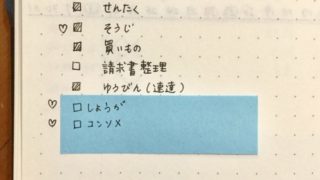 せんたく
そうじ
買いもの
請求書整理
ゆうびん(速達)
しょうが
コンソメ